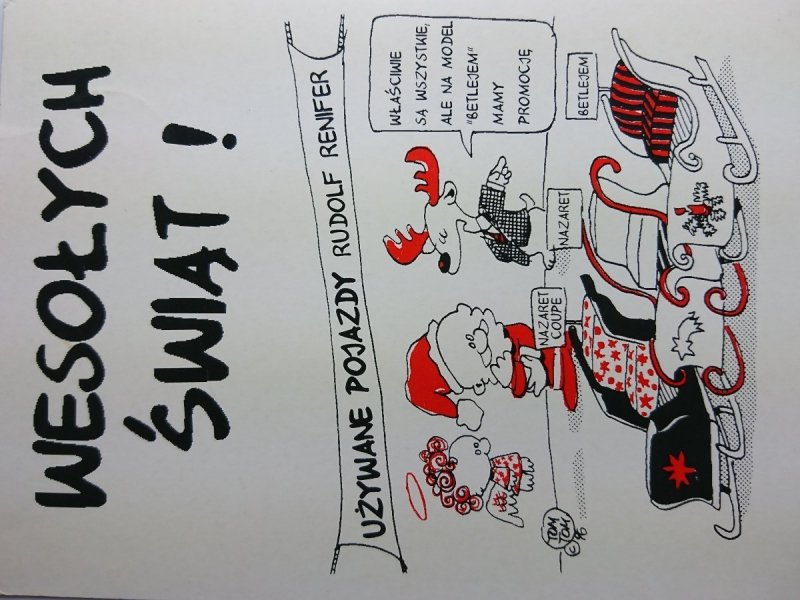 WESOŁYCH
ŚWIĄT !
UŻYWANE POJAZDY RUDOLF RENIFER
WŁAŚCIWIE
SĄ WSZYSTKIE,
ALE NA MODEL
"BETLEJEM"
MAMY
PROMOCJĘ
NAZARET
COUPE
NAZARET
BETLEJEM
TOM
TOM
© 96